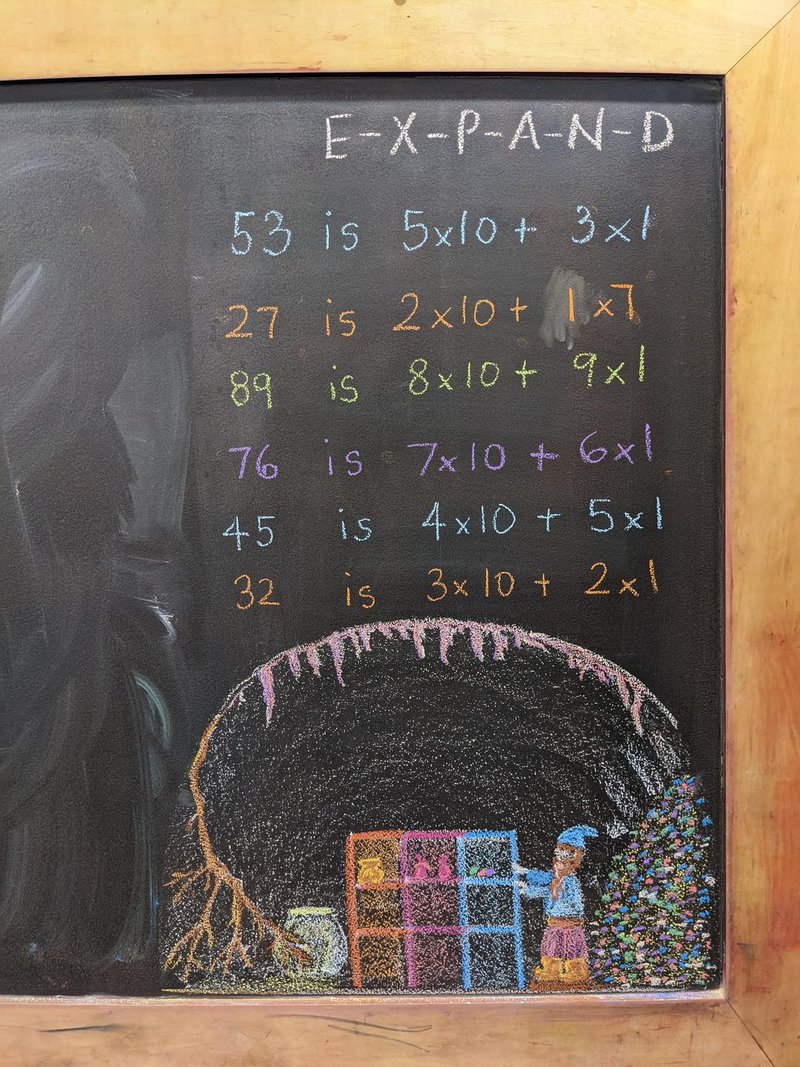 E-X-P-A-N-D
53 is 5x10 + 3x1
27 is 2x10 + 1x7
89 is 8x10 + 9x1
76 is 7x10 + 6x1
45 is 4x10 + 5x1
32 is 3x10 + 2x1